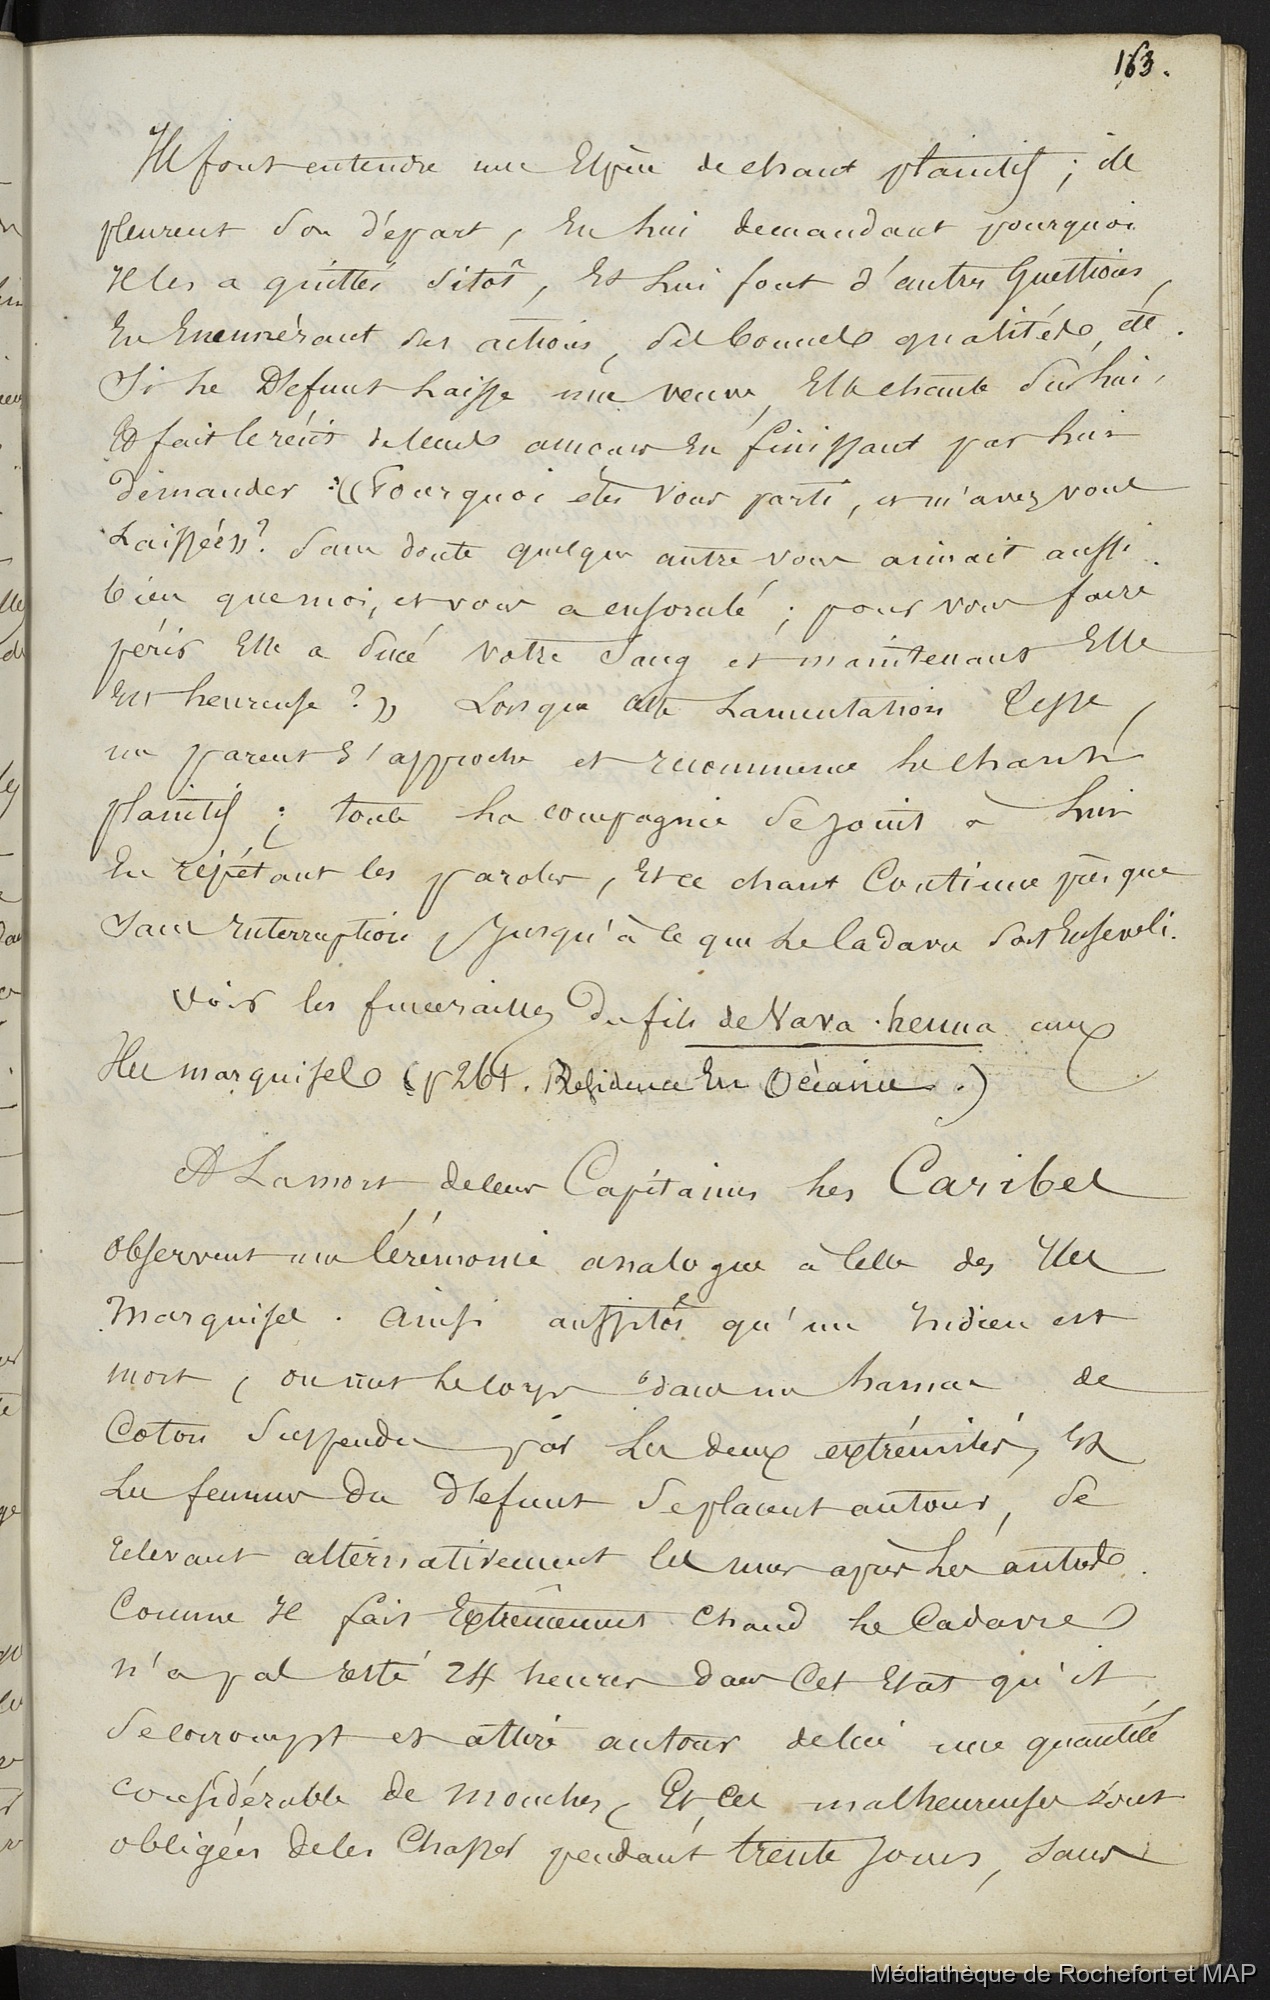 163.
Ils font entendre une Espèce de chant plaintif ; ils
pleurent son départ, En lui demandant pourquoi
Il les a quittés sitôt, Et lui font d'autres Questions,
En Enumérant ses actions, ses bonnes qualités, etc.
Si le Défunt laisse une veuve, Elle chante sur lui,
Et fait le récit de leurs amours En finissant par lui
demander : « Pourquoi êtes vous parti, et m'avez vous
Laissée »? Sans doute quelque autre vous aimait aussi
bien que moi, et vous a ensorcelé ; pour vous faire
périr Elle a sucé votre Sang et maintenant Elle
Est heureuse ? » Lorsque cette Lamentation Cesse,
un parent s'approche et recommence le chant
plaintif ; toute la compagnie se joint à lui
En répétant les paroles, Et ce chant Continue presque
Sans Interruption Jusqu'à ce que le Cadavre soit Enseveli.
Voir les funerailles du fils de Vava-henua aux
Iles marquises (p 261. Residence En Océanie.)
A La mort de leurs Capitaines les Caribes
Observent une Cérémonie analogue à Celle des Iles
Marquises. Ainsi aussitôt qu'un Indien est
mort, on met le corps dans un hamac de
Coton Suspendu par les deux extrémités, Et
Les femmes du Défunt se placent autour, se
relevant alternativement les unes après les autres.
Comme Il fait Extrêmement Chaud le Cadavre
n'a pas resté 24 heures dans Cet Etat qu'il
se corrompt et attire autour de lui une quantité
considérable de mouches, Et Ces malheureuses sont
obligées de les Chasser pendant trente Jours, sans
Médiathèque de Rochefort et MAP